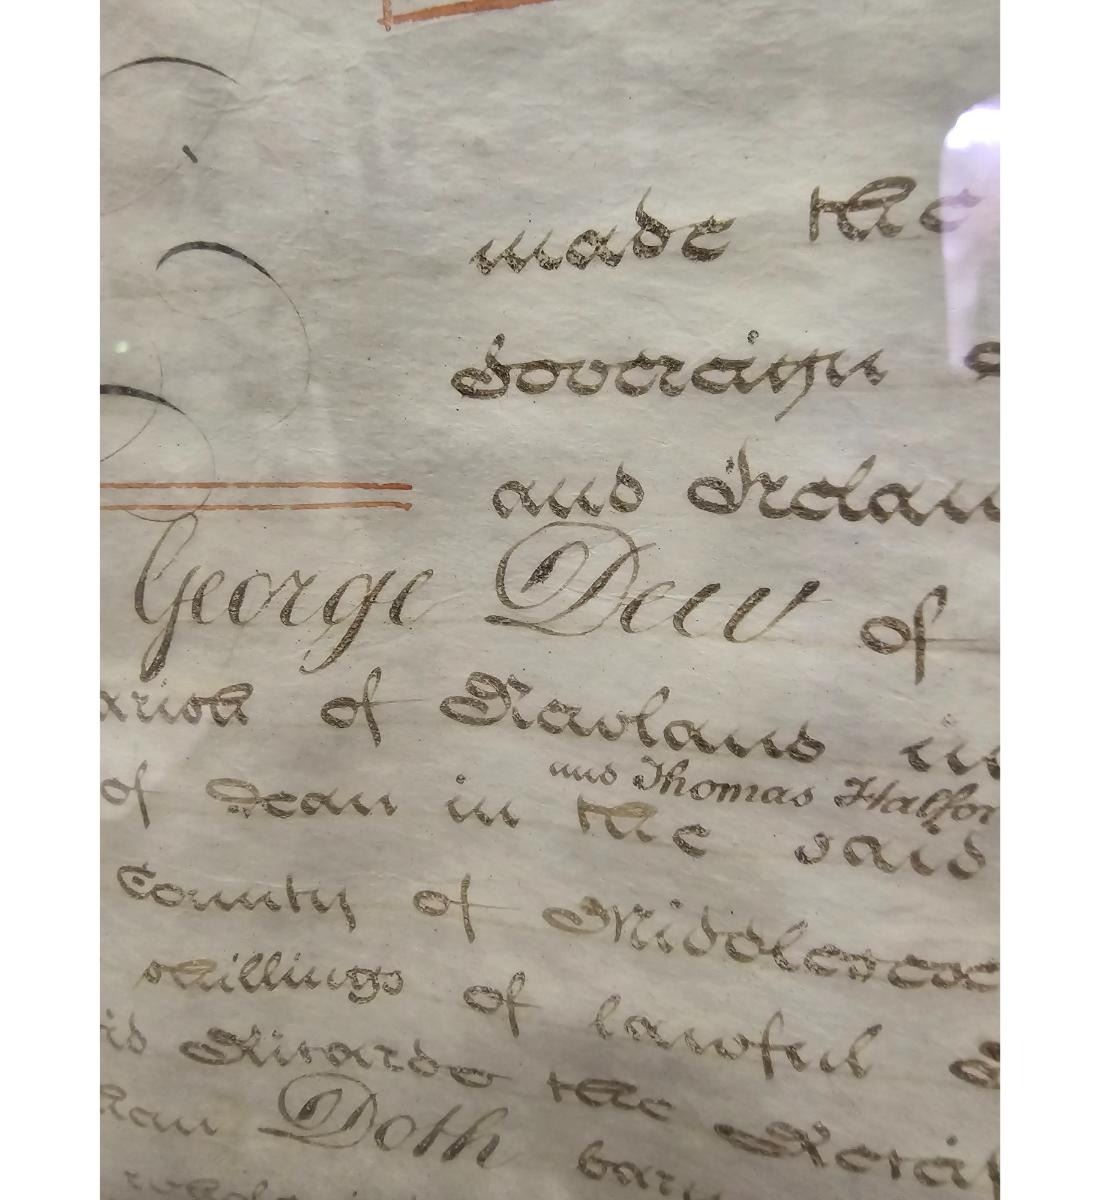 made the
Soveraign
and Irelan
George Dew of
arish of Ravland in
and Thomas Halfor
of Dean in the said
County of Middlesex
shillings of lawful
id Richard the Receip
han Doth bar